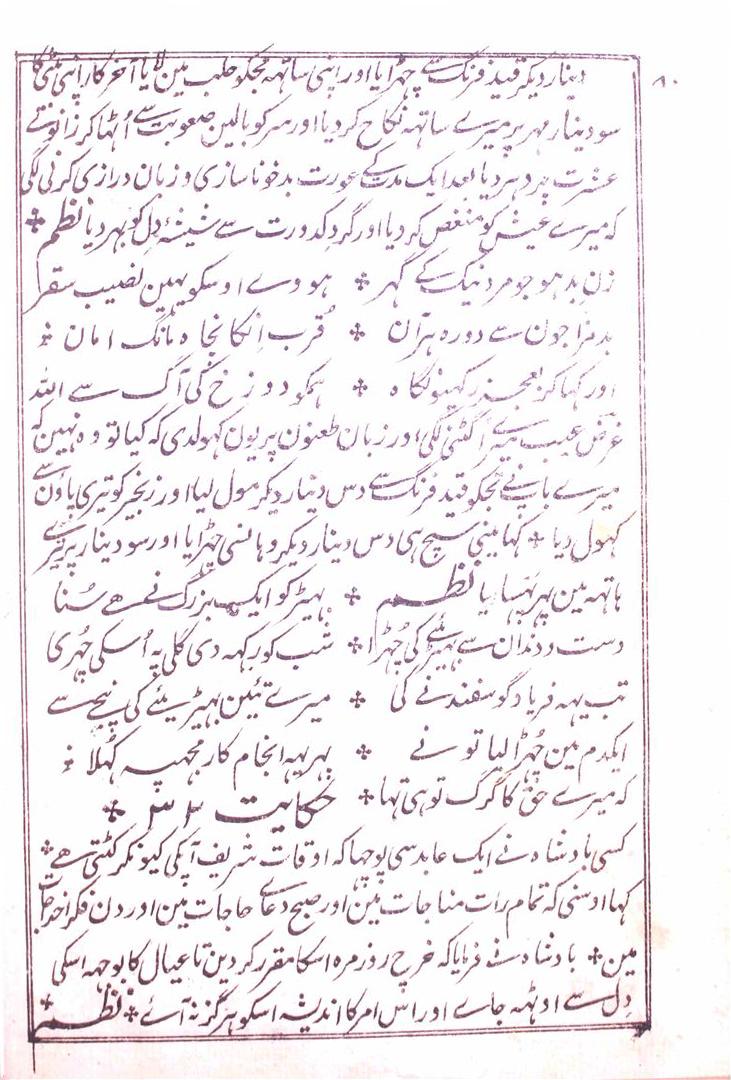 ۸۰
دینار دیکر قید فرنگ سے چھڑایا اور اپنی ساتہہ مجکو حلب مین لایا آخر کار اپنی بیٹی کا
سو دینار مہر پر میرے ساتہہ نکاح کر دیا اور سر کو بالین صعوبت سے اُٹھا کر زانوئے
عشرت پر دہر دیا بعد ایک مدت کے عورت بدخو ناسازی و زبان درازی کرنی لگی
کہ میرے عیش کو منغص کر دیا اور گرد کدورت سے شیشۂ دل کو بہر دیا نظم ❖
زن بد ہو جو مرد نیک کے گہر ❖ ہووے اوسکو یہین نصیب سقر
بد مزاجون سے دور رہ ہر آن ❖ قُرب اِنکا نچاہ مانگ امان ❖
اور کہا کر بعجز رکہیو نگاہ ❖ ہمکو دوزخ کی آگ سے اللہ
غرض عیب میرے گننی لگی اور زبان طعنون پر یون کہولدی کہ کیا تو وہ نہین کہ
میرے باپ نے تجکو قید فرنگ سے دس دینار دیکر مول لیا اور زنجیر کو تیری پاؤن سے
کہول دیا ❖ کہا مینی سچ ہی دس دینار دیکر وہانسی چھڑایا اور سو دینار پر تیرے
ہاتہہ مین پہر پہنسایا نظم ❖ بہیڑ کو ایک بزرگ نے ھے سُنا
دست و دندان سے بہیڑئیے کی چُھڑا ❖ شب کو رکہہ دی گلی پہ اُسکی چہری
تب یہہ فریاد گوسفند نے کی ❖ میرے تئین بہیڑیئے کی پنجے سے
ایکدم مین چُھڑا لیا تو نے ❖ پہر یہہ انجام کار مجہپہ کُھلا ❖
کہ میرے حق کا گرگ تو ہی تہا ❖ حکایت ۳۲ ❖
کسی بادشاہ نے ایک عابد سی پوچہا کہ اوقات شریف آپکی کیونکر کٹتی ھے ❖
کہا اوسنی کہ تمام رات مناجات مین اور صبح دعاے حاجات مین اور دن فکر اخراجات
مین ❖ بادشاہ نے فرمایا کہ خرچ روزمرہ اسکا مقرر کر دین تا عیال کا بوجہہ اسکی
دل سے اوٹہہ جاے اور اس امر کا اندیشہ اسکو ہرگز نہ آئے ❖ نظم ❖